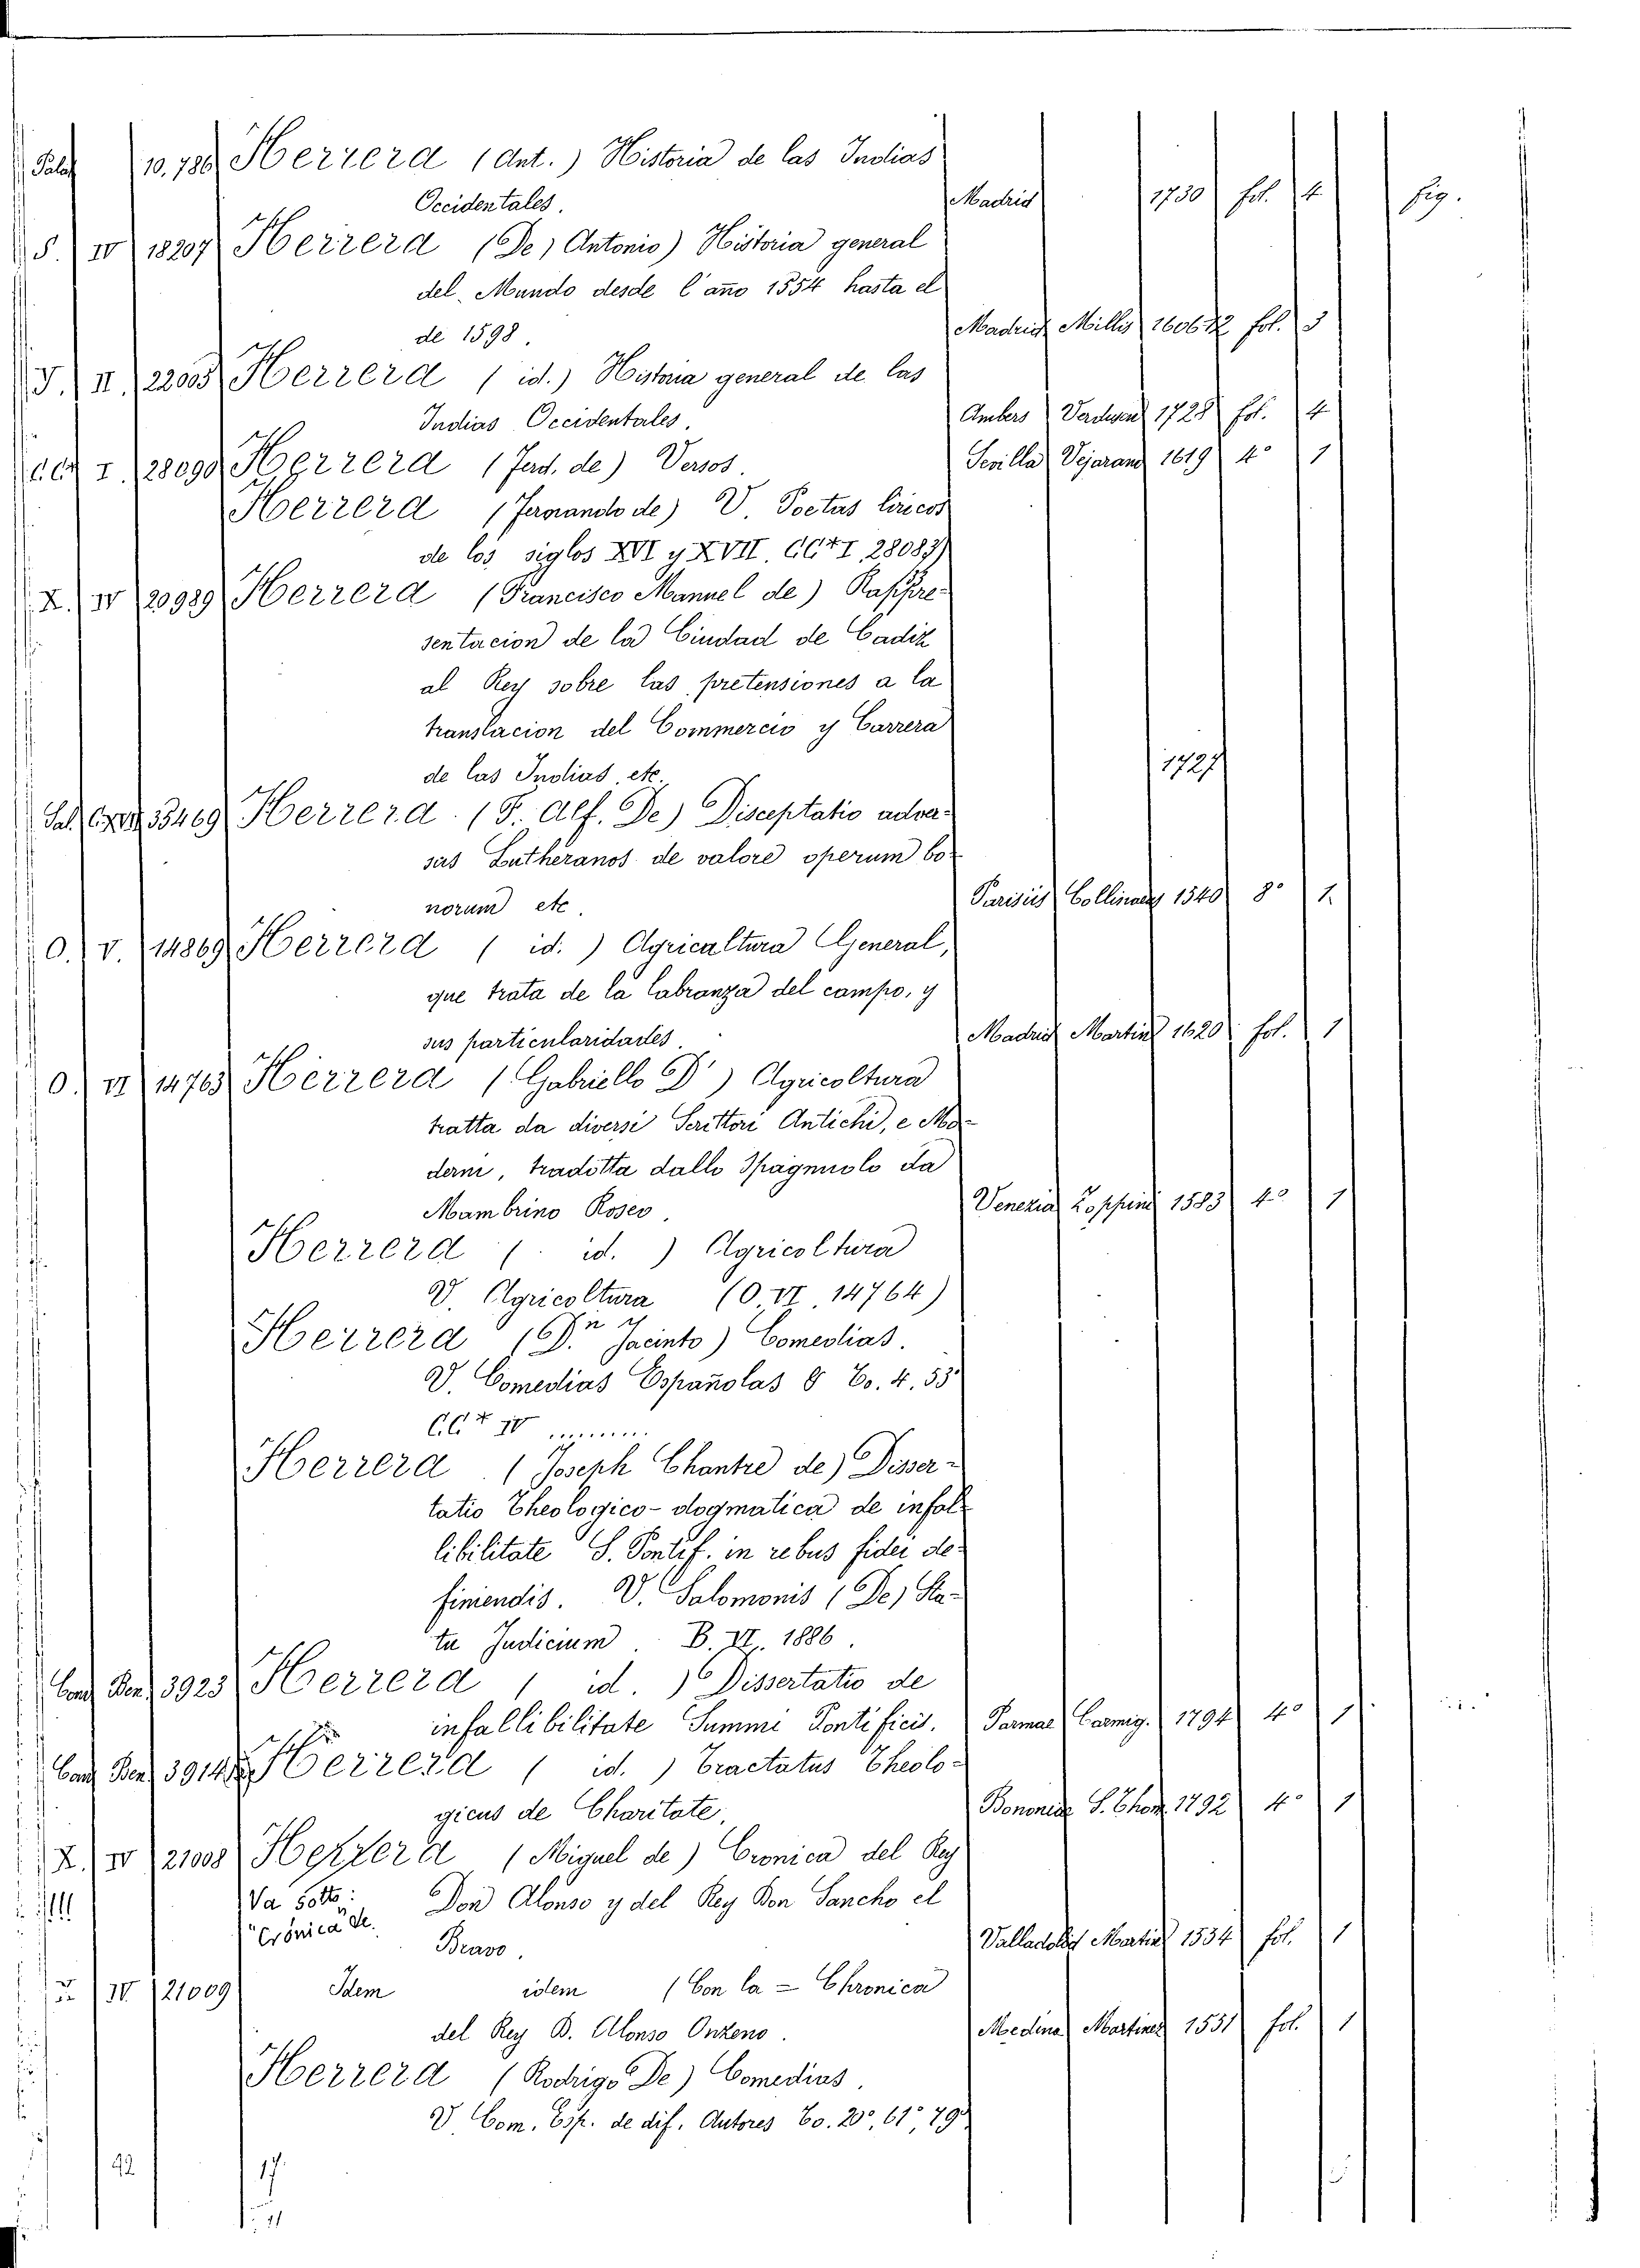 Palat 10.786 Herrera (Ant.) Historia de las Indias
Occidentales. Madrid 1730 fol. 4 fig.
S. IV 18207 Herrera (De) Antonio) Historia general
del Mundo desde l'año 1554 hasta el
de 1598. Madrid Millis 1606.12 fol. 3
II. 22005 Herrera (id.) Historia general de las
Indias Occidentales. Ambers Verdusen 1728 fol. 4
I. 28090 Herrera (Ferd. de) Versos. Sevilla Vejarano 1619 4° 1
Herrera (Fernando de) V. Poetas liricos
de los siglos XVI y XVII. CC+I 28083)
X. IV 20989 Herrera (Francisco Manuel de) Rappre-
sentacion de la Ciudad de Cadiz
al Rey sobre las pretensiones a la
translacion del Commercio y Carrera
de las Indias, etc. 1727
33469 Herrera (F. Alf. De) Disceptatio adver-
sus Lutheranos de valore operum bo-
norum etc. Parisiis Collinaeus 1540 8° 1.
O. V. 14869 Herrera (id.) Agricaltura General,
que trata de la labranza del campo, y
sus particularidades. Madrid Martinz 1620 fol. 1
O. VI 14763 Herrera (Gabriello D') Agricoltura
tratta da diversi Scrittori Antichi, e Mo-
derni, tradotta dallo Spagnuolo da
Mambrino Roseo. Venezia Zoppini 1583 4° 1
Herrera (id.) Agricoltura
V. Agricoltura (O. VI. 14764)
Herrera (Dn Jacinto) Comedias.
V. Comedias Españolas & To. 4. 53°
CC+ IV ........
Herrera (Joseph Chantre de) Disser-
tatio Theologico-dogmatica de infal-
libilitate S. Pontif. in rebus fidei de-
finiendis. V. Salomonis (De) Sta-
tu Judicium. B. VI. 1886.
Conv Ben 3923 Herrera (id.) Dissertatio de
infallibilitate Summi Pontificis. Parmae Carmig. 1794 4° 1
Conv Ben 3914 Herrera (id.) Tractatus Theolo-
gicus de Charitate. Bononiae S. Thom. 1792 4° 1
X. IV 21008 Herrera (Miguel de) Cronica del Rey
Va sotto: Don Alonso y del Rey Don Sancho el
"Crónica de. Bravo. Valladolid Martinz 1534 fol. 1
IV 21009 Idem idem (Con la = Chronica
del Rey D. Alonso Onzeno. Medina Martinez 1551 fol. 1
Herrera (Rodrigo De) Comedias.
V. Com. Esp. de dif. Autores To. 20°, 61°, 79°
42 17